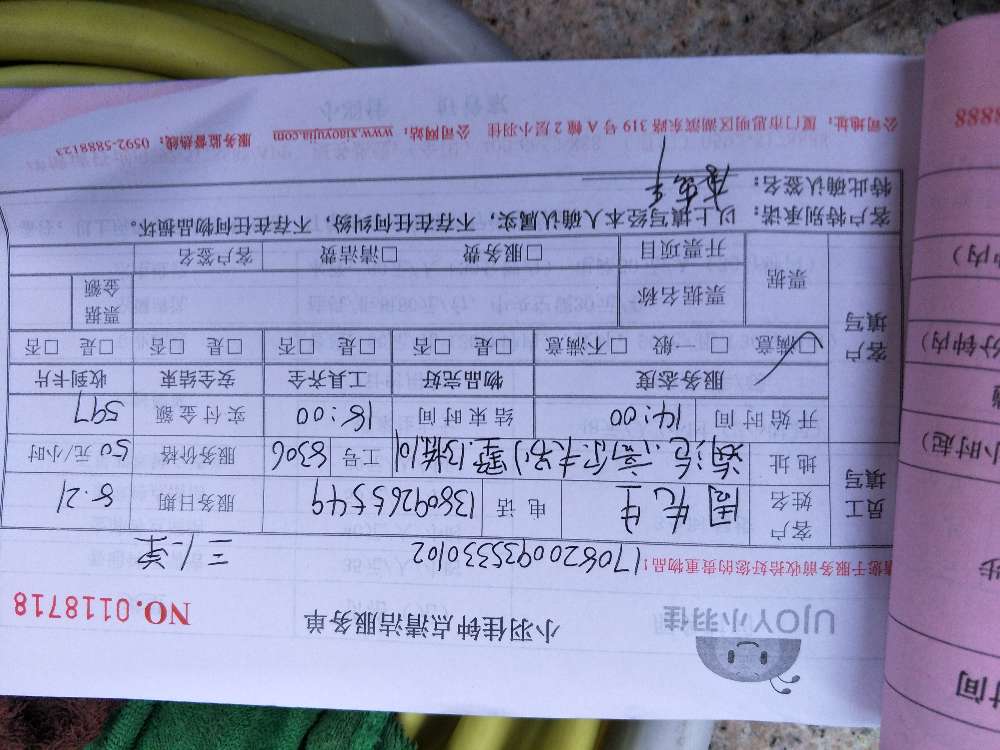 UJOY小羽佳
小羽佳钟点清洁服务单
NO.0118718
请您于服务前收拾好您的贵重物品!
17082009353330102
三仁桨
员工填写
客户姓名 周先生 电话 13609265549 服务日期 8.21
地址 工号 8306 服务价格 50元/小时
开始时间 14:00 结束时间 18:00 实付金额 597
客户填写
服务态度 物品完好 工具齐全 安全结束 收到卡片
□满意 □一般 □不满意 □是 □否 □是 □否 □是 □否 □是 □否
票据 票据名称 票据金额
开票项目 □服务费 □清洁费 客户签名
客户特别承诺:以上填写经本人确认,属实,不存在任何纠纷,不存在任何物品损坏。
特此确认签名:
公司地址:厦门市思明区湖滨东路319号A幢2层小羽佳 公司网站:www.xiaoyujia.com 服务监督热线:0592-5888123
时间
步
小时起)
分钟内)
钟内)
8888